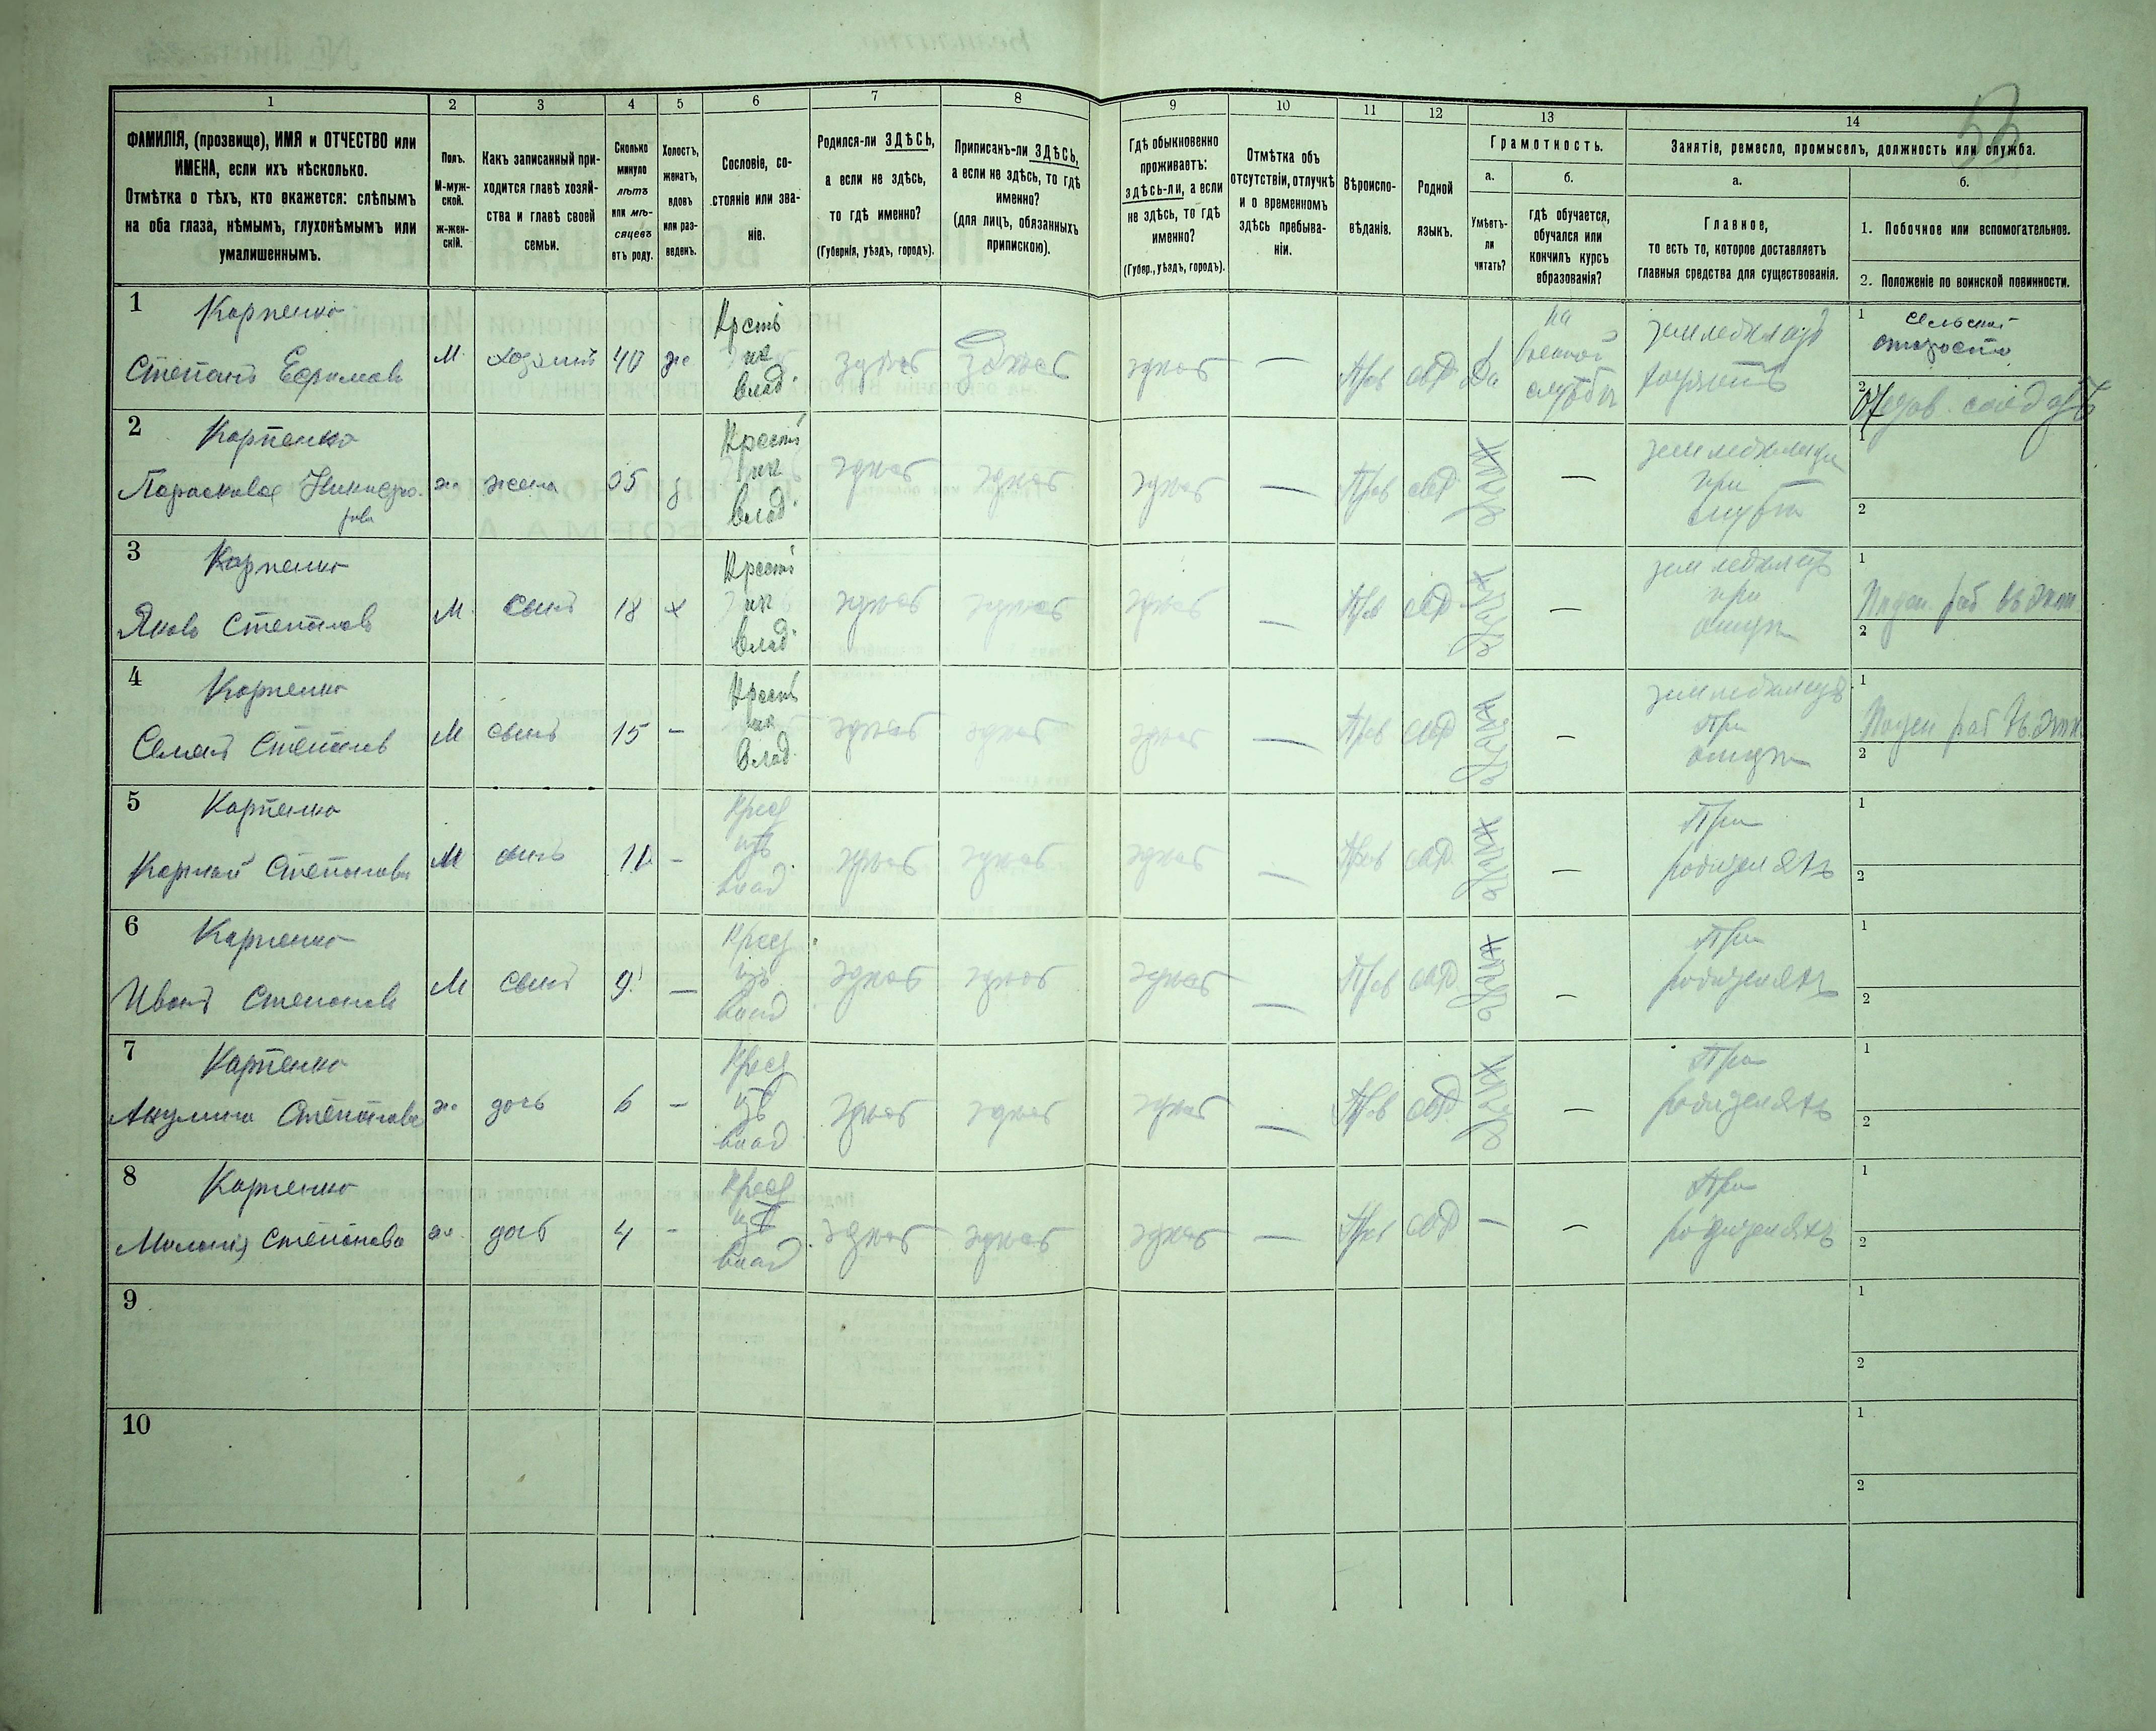 53
1 2 3 4 5 6 7 8 9 10 11 12 13 14
ФАМИЛІЯ, (прозвище), ИМЯ и ОТЧЕСТВО или
ИМЕНА, если ихъ нѣсколько.
Отмѣтка о тѣхъ, кто окажется: слѣпымъ
на оба глаза, нѣмымъ, глухонѣмымъ или
умалишеннымъ.
Полъ.
М-муж-
ской.
ж-жен-
скій.
Какъ записанный при-
ходится главѣ хозяй-
ства и главѣ своей
семьи.
Сколько
минуло
лѣтъ
или мѣ-
сяцевъ
отъ роду.
Холостъ,
женатъ,
вдовъ
или раз-
веденъ.
Сословіе, со-
стояніе или зва-
ніе.
Родился-ли ЗДѢСЬ,
а если не здѣсь,
то гдѣ именно?
(Губернія, уѣздъ, городъ).
Приписанъ-ли ЗДѢСЬ,
а если не здѣсь, то гдѣ
именно?
(для лицъ, обязанныхъ
припискою).
Гдѣ обыкновенно
проживаетъ:
здѣсь-ли, а если
не здѣсь, то гдѣ
именно?
(Губер., уѣздъ, городъ).
Отмѣтка объ
отсутствіи, отлучкѣ
и о временномъ
здѣсь пребыва-
ніи.
Вѣроиспо-
вѣданіе.
Родной
языкъ.
Грамотность.
а.
Умѣетъ-
ли
читать?
б.
гдѣ обучается,
обучался или
кончилъ курсъ
образованія?
Занятіе, ремесло, промыселъ, должность или служба.
а.
Главное,
то есть то, которое доставляетъ
главныя средства для существованія.
б.
1. Побочное или вспомогательное.
2. Положеніе по воинской повинности.
1 Карпенко
Степанъ Ефимовъ
М. хозяинъ 40 ж
Крестъ
из
влад.
здѣсь здѣсь здѣсь — Прав Да
на
военной
службѣ
земледѣлецъ
хозяинъ
1 Сельскій
2 солдатъ
2 Карпенко
Парасковея
ж. жена 35
Крестъ
из
влад.
здѣсь здѣсь здѣсь — Прав —
земледѣлица
при
1
2
3 Карпенко
Яковъ Степановъ
М. сынъ 18 х
Крестъ
из
влад
здѣсь здѣсь здѣсь — Прав —
земледѣлецъ
при
отцѣ
1 Поден. раб въ экон
2
4 Карпенко
Семенъ Степановъ
М сынъ 15 —
Крестъ
из
влад.
здѣсь здѣсь здѣсь — Прав —
земледѣлецъ
При
отцѣ
1 Поден раб въ экон
2
5 Карпенко
Степановъ
М сынъ 11 —
Крест
изъ
влад
здѣсь здѣсь здѣсь — Прав —
При
родителяхъ
1
2
6 Карпенко
Иванъ Степановъ
М сынъ 9 —
Крест
изъ
влад
здѣсь здѣсь здѣсь — Прав —
При
родителяхъ
1
2
7 Карпенко
Акулина Степанова
ж. дочь 6 —
Крест
изъ
влад
здѣсь здѣсь здѣсь — Прав —
При
родителяхъ
1
2
8 Карпенко
Степанова
ж. дочь 4 —
Крест
изъ
влад
здѣсь здѣсь здѣсь — Прав — —
При
родителяхъ
1
2
9
1
2
10
1
2